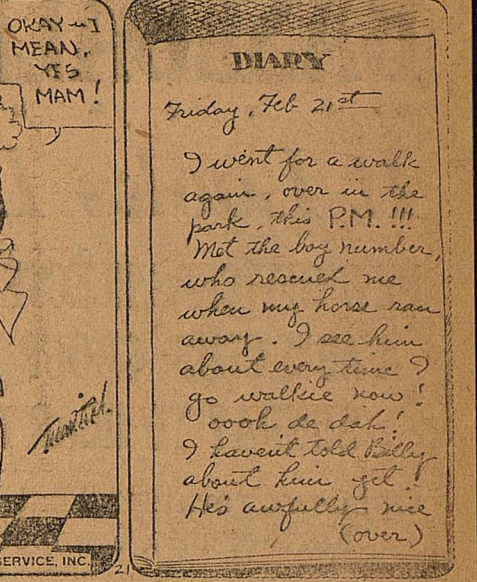 OKAY - I
MEAN,
YES
MAM!
SERVICE, INC.
21
DIARY
Friday, Feb 21st
I went for a walk
again, over in the
park, this P.M.!!!
Met the boy number,
who rescued me
when my horse ran
away. I see him
about every time I
go walkie now!
oooh de dah!
I haven't told Billy
about him yet!
He's awfully nice
(over)